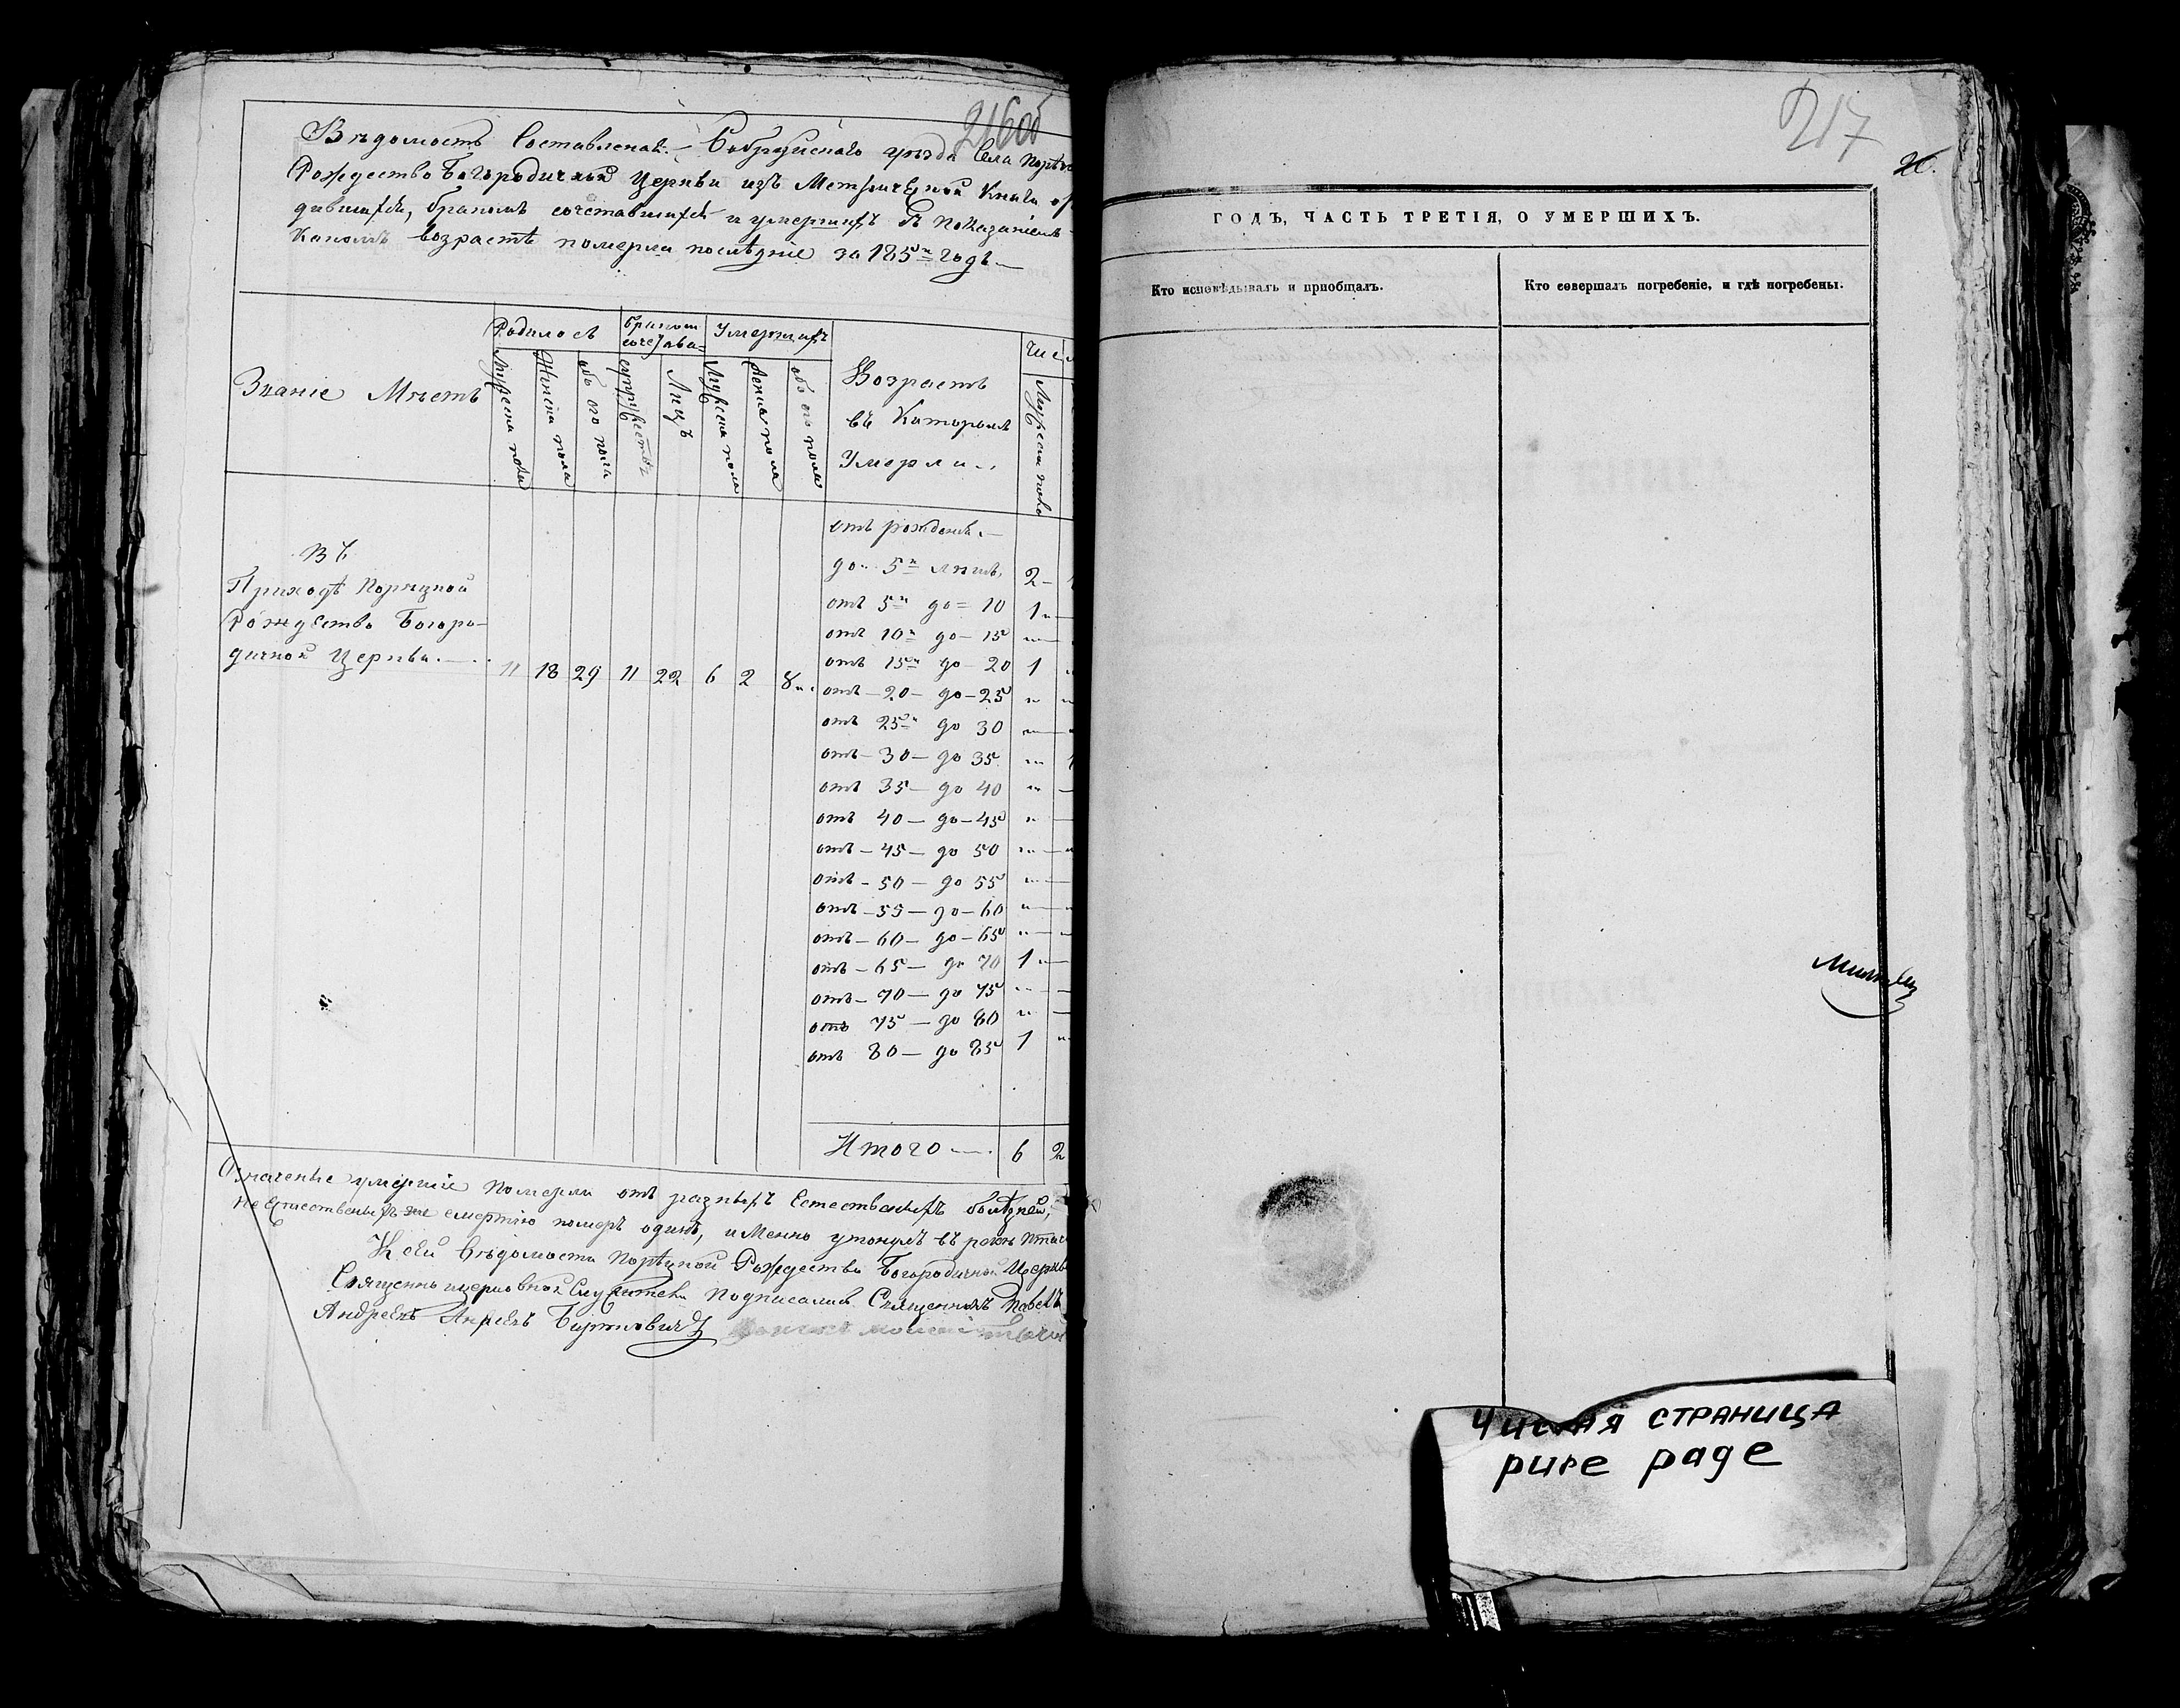 216об
Вѣдомость Составленая Бобруйскаго уѣзда Села
Рождество Богородичной Церкви изъ Метрической Книги
браномъ сочетавшихся и умершихъ съ показаніемъ
Каномъ возрастѣ померли послѣдніе за 185 годъ
Званіе Мѣстъ
Родилось
Мужеска пола
Женска пола
обоего пола
бракомъ
сочетава=
супружествъ
Лицъ
Умершихъ
Мужеска пола
Женска пола
обоего пола
Возрастъ
въ Которомъ
Умерли
Чис
Мужеска пола
Въ
Приходѣ
Рождество Богоро-
дичной Церкви
11 18 29 11 22 6 2 8
отъ рожденія
до 5 лѣтъ 2
отъ 5 до 10 1
отъ 10 до 15 "
отъ 15 до 20 1
отъ 20 до 25 "
отъ 25 до 30 "
отъ 30 до 35 "
отъ 35 до 40 "
отъ 40 до 45 "
отъ 45 до 50 "
отъ 50 до 55 "
отъ 55 до 60 "
отъ 60 до 65 "
отъ 65 до 70 1
отъ 70 до 75 "
отъ 75 до 80 "
отъ 80 до 85 1
Итого 6 2
умершіе померли отъ разныхъ Естественыхъ болѣзней,
смертію померъ одинъ, именно утонулъ въ рекѣ
К сей Вѣдомости Порѣцкой Рождество Богородичной Церкви
Священно церковно Служители подписались Священникъ Павелъ
Андреевъ
217
26.
ГОДЪ, ЧАСТЬ ТРЕТІЯ, О УМЕРШИХЪ.
Кто исповѣдывалъ и пріобщалъ.
Кто совершалъ погребеніе, и гдѣ погребены.
Чистая страница
pure page